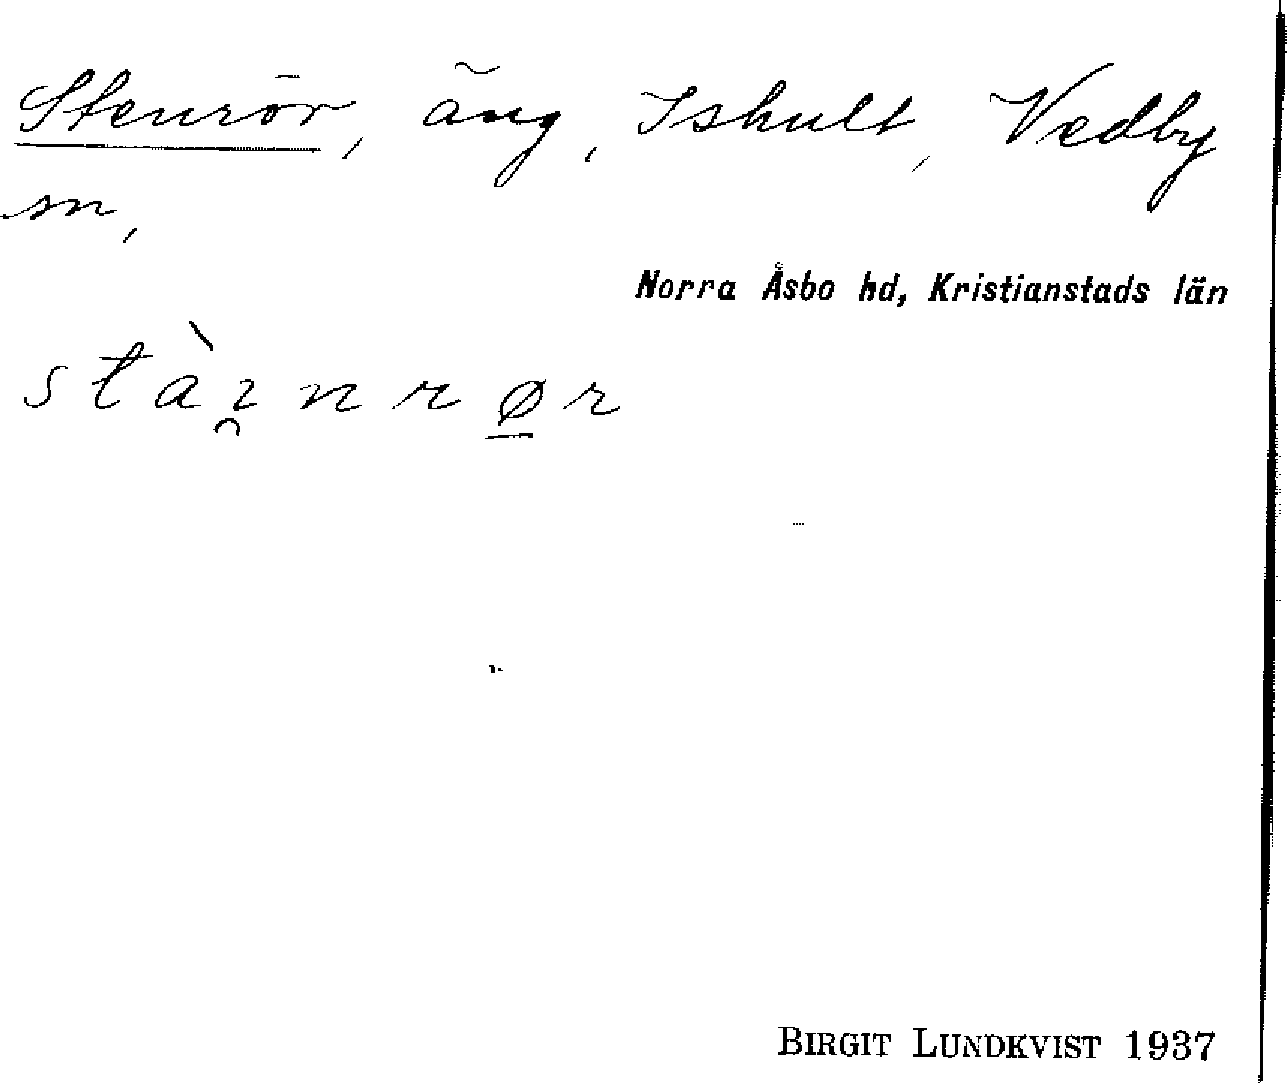 Stenrör, äng, Ishult, Vedby
sn,
Norra Åsbo hd, Kristianstads län
stàı̯nrø̱r
BIRGIT LUNDKVIST 1937